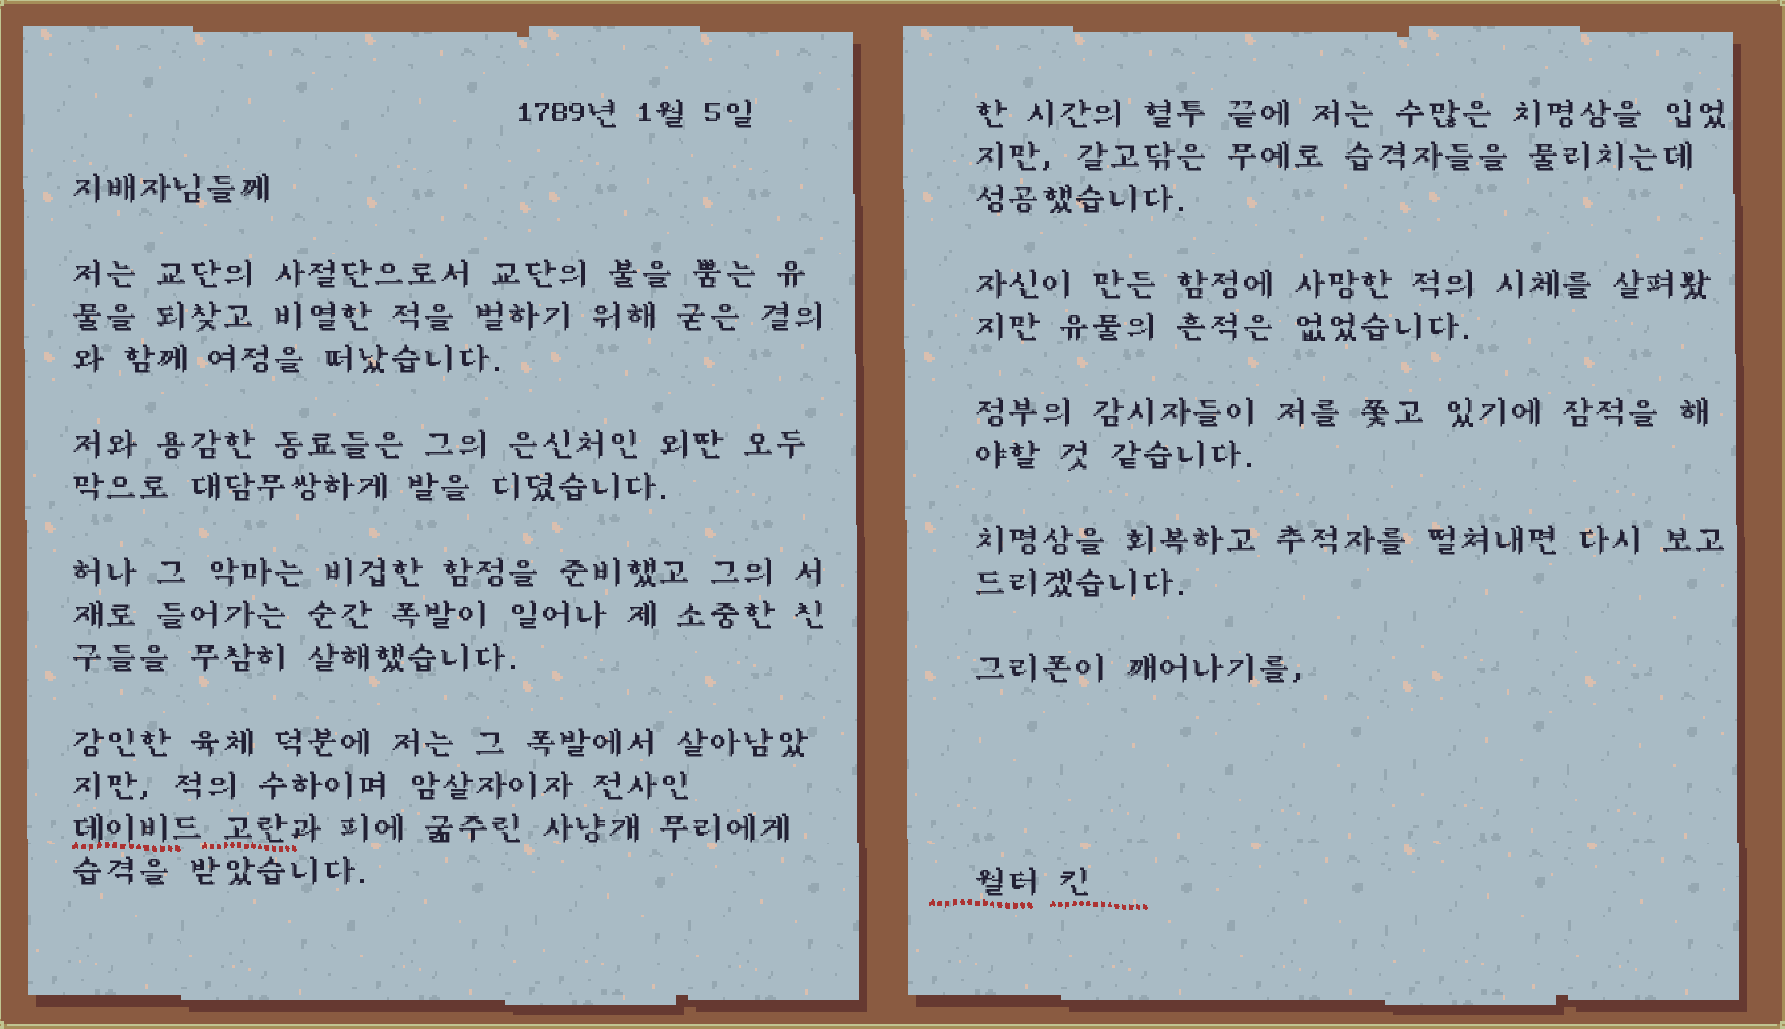 1789년 1월 5일
지배자님들께
저는 교단의 사절단으로서 교단의 불을 뿜는 유
물을 되찾고 비열한 적을 벌하기 위해 굳은 결의
와 함께 여정을 떠났습니다.
저와 용감한 동료들은 그의 은신처인 외딴 오두
막으로 대담무쌍하게 발을 디뎠습니다.
허나 그 악마는 비겁한 함정을 준비했고 그의 서
재로 들어가는 순간 폭발이 일어나 제 소중한 친
구들을 무참히 살해했습니다.
강인한 육체 덕분에 저는 그 폭발에서 살아남았
지만, 적의 수하이며 암살자이자 전사인
데이비드 고란과 피에 굶주린 사냥개 무리에게
습격을 받았습니다.
한 시간의 혈투 끝에 저는 수많은 치명상을 입었
지만, 갈고닦은 무예로 습격자들을 물리치는데
성공했습니다.
자신이 만든 함정에 사망한 적의 시체를 살펴봤
지만 유물의 흔적은 없었습니다.
정부의 감시자들이 저를 쫓고 있기에 잠적을 해
야할 것 같습니다.
치명상을 회복하고 추적자를 떨쳐내면 다시 보고
드리겠습니다.
그리폰이 깨어나기를,
월터 킨